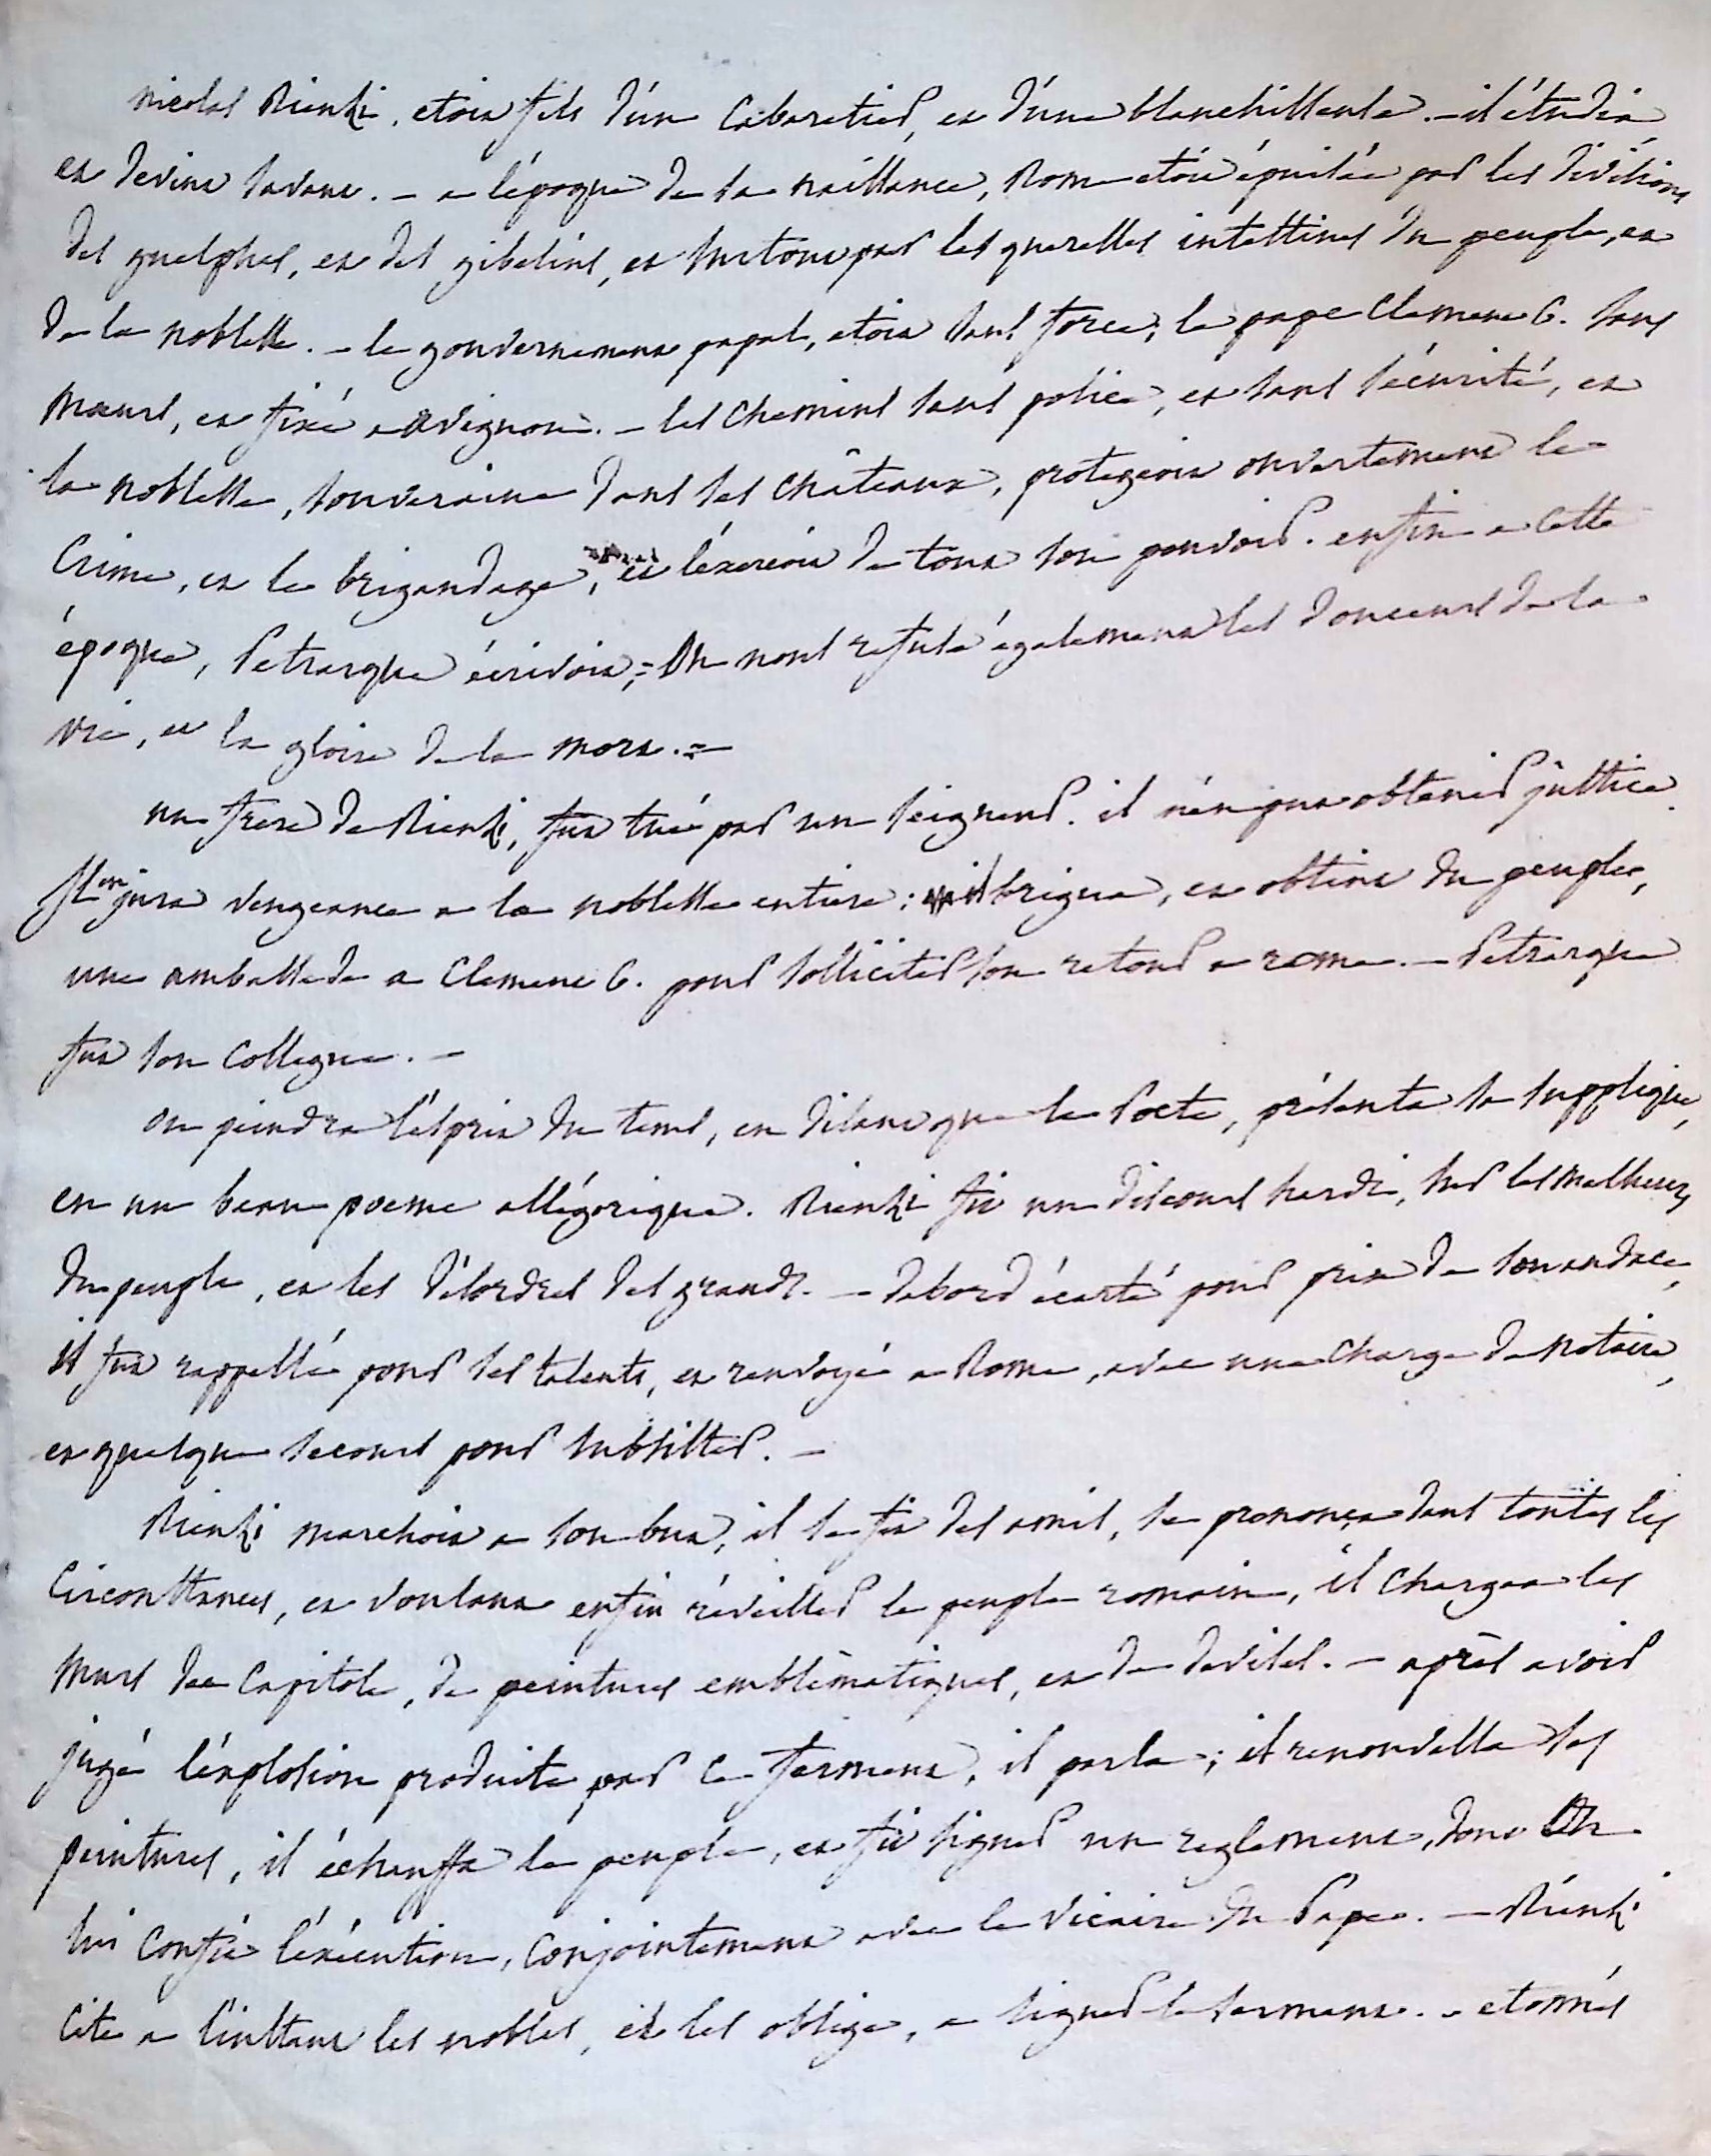 nicolas Rienzi, etoit fils d'un Cabaretier, et d'une blanchisseuse. - il étudia,
et devint savant. - a l'époque de sa naissance, Rome étoit épuisée par les divisions
des guelphes, et des gibelins, et surtout par les querelles intestines du peuple, et
de la noblesse. - le gouvernement papal, etoit sans force; le pape Clement 6. sans
mœurs, et fixé a avignon. - les chemins sans police, et sans sécurité, et
la noblesse, souveraine dans ses châteaux, protegeoit ouvertement le
Crime, et le brigandage, et l'exercoit de tout son pouvoir. enfin a cette
époque, Petrarque écrivoit; = On nous refuse également les douceurs de la
vie, et la gloire de la mort. =
un frere de Rienzi, fut tué par un seigneur. il n'en put obtenir justice.
Il en jura vengeance a la noblesse entiere; il brigua, et obtint du peuple,
une ambassade a Clement 6. pour solliciter son retour a rome. - Petrarque
fut son Collegue. -
on peindra l'esprit du tems, en disant que le Poete, présenta sa supplique,
en un beau poeme allégorique. Rienzi fit un discours hardi, sur les malheurs
du peuple, et les désordres des grands. - d'abord écarté pour prix de son audace,
il fut rappellé pour ses talents, et renvoyé a Rome, avec une charge de notaire,
et quelque secours pour subsister. -
Rienzi marchoit a son but, il se fit des amis, se prononça dans toutes les
Circonstances, et voulant enfin réveiller le peuple romain, il chargea les
murs du Capitole, de peintures emblématiques, et de devises. - après avoir
jugé l'explosion produite par ce ferment, il parla; il renouvella ses
peintures, il échauffa le peuple, et fit signer un reglement, dont On
lui confia l'exécution, Conjointement avec le vicaire du Pape. - Rienzi
Cite a l'instant les nobles, et les oblige, a signer le serment. - etonnés